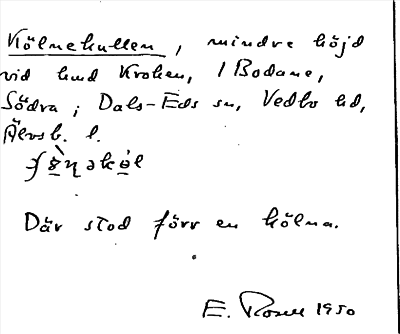 Kölnekullen, mindre höjd
vid lund Kroken, 1 Bodane,
Södra; Dals-Eds sn, Vedbo hd,
Älvsb. l.
Där stod förr en kölna.
E. Rosell 1950